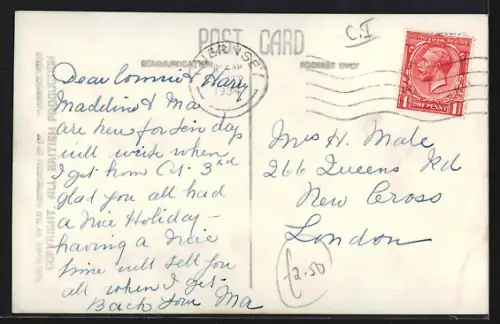 C.I
POST CARD
COMMUNICATION
ADDRESS ONLY
GUERNSEY
193
ONE PENNY
1
1
COPYRIGHT. ALL BRITISH PRODUCTION
Dear Connie & Harry
Madeline & Ma
are here for ten days
will write when
I get home Oct 3rd
glad you all had
a nice Holiday -
having a nice
time will tell you
all when I get
Back love Ma
Mrs H. Male
266 Queens Rd
New Cross
London
£2.50